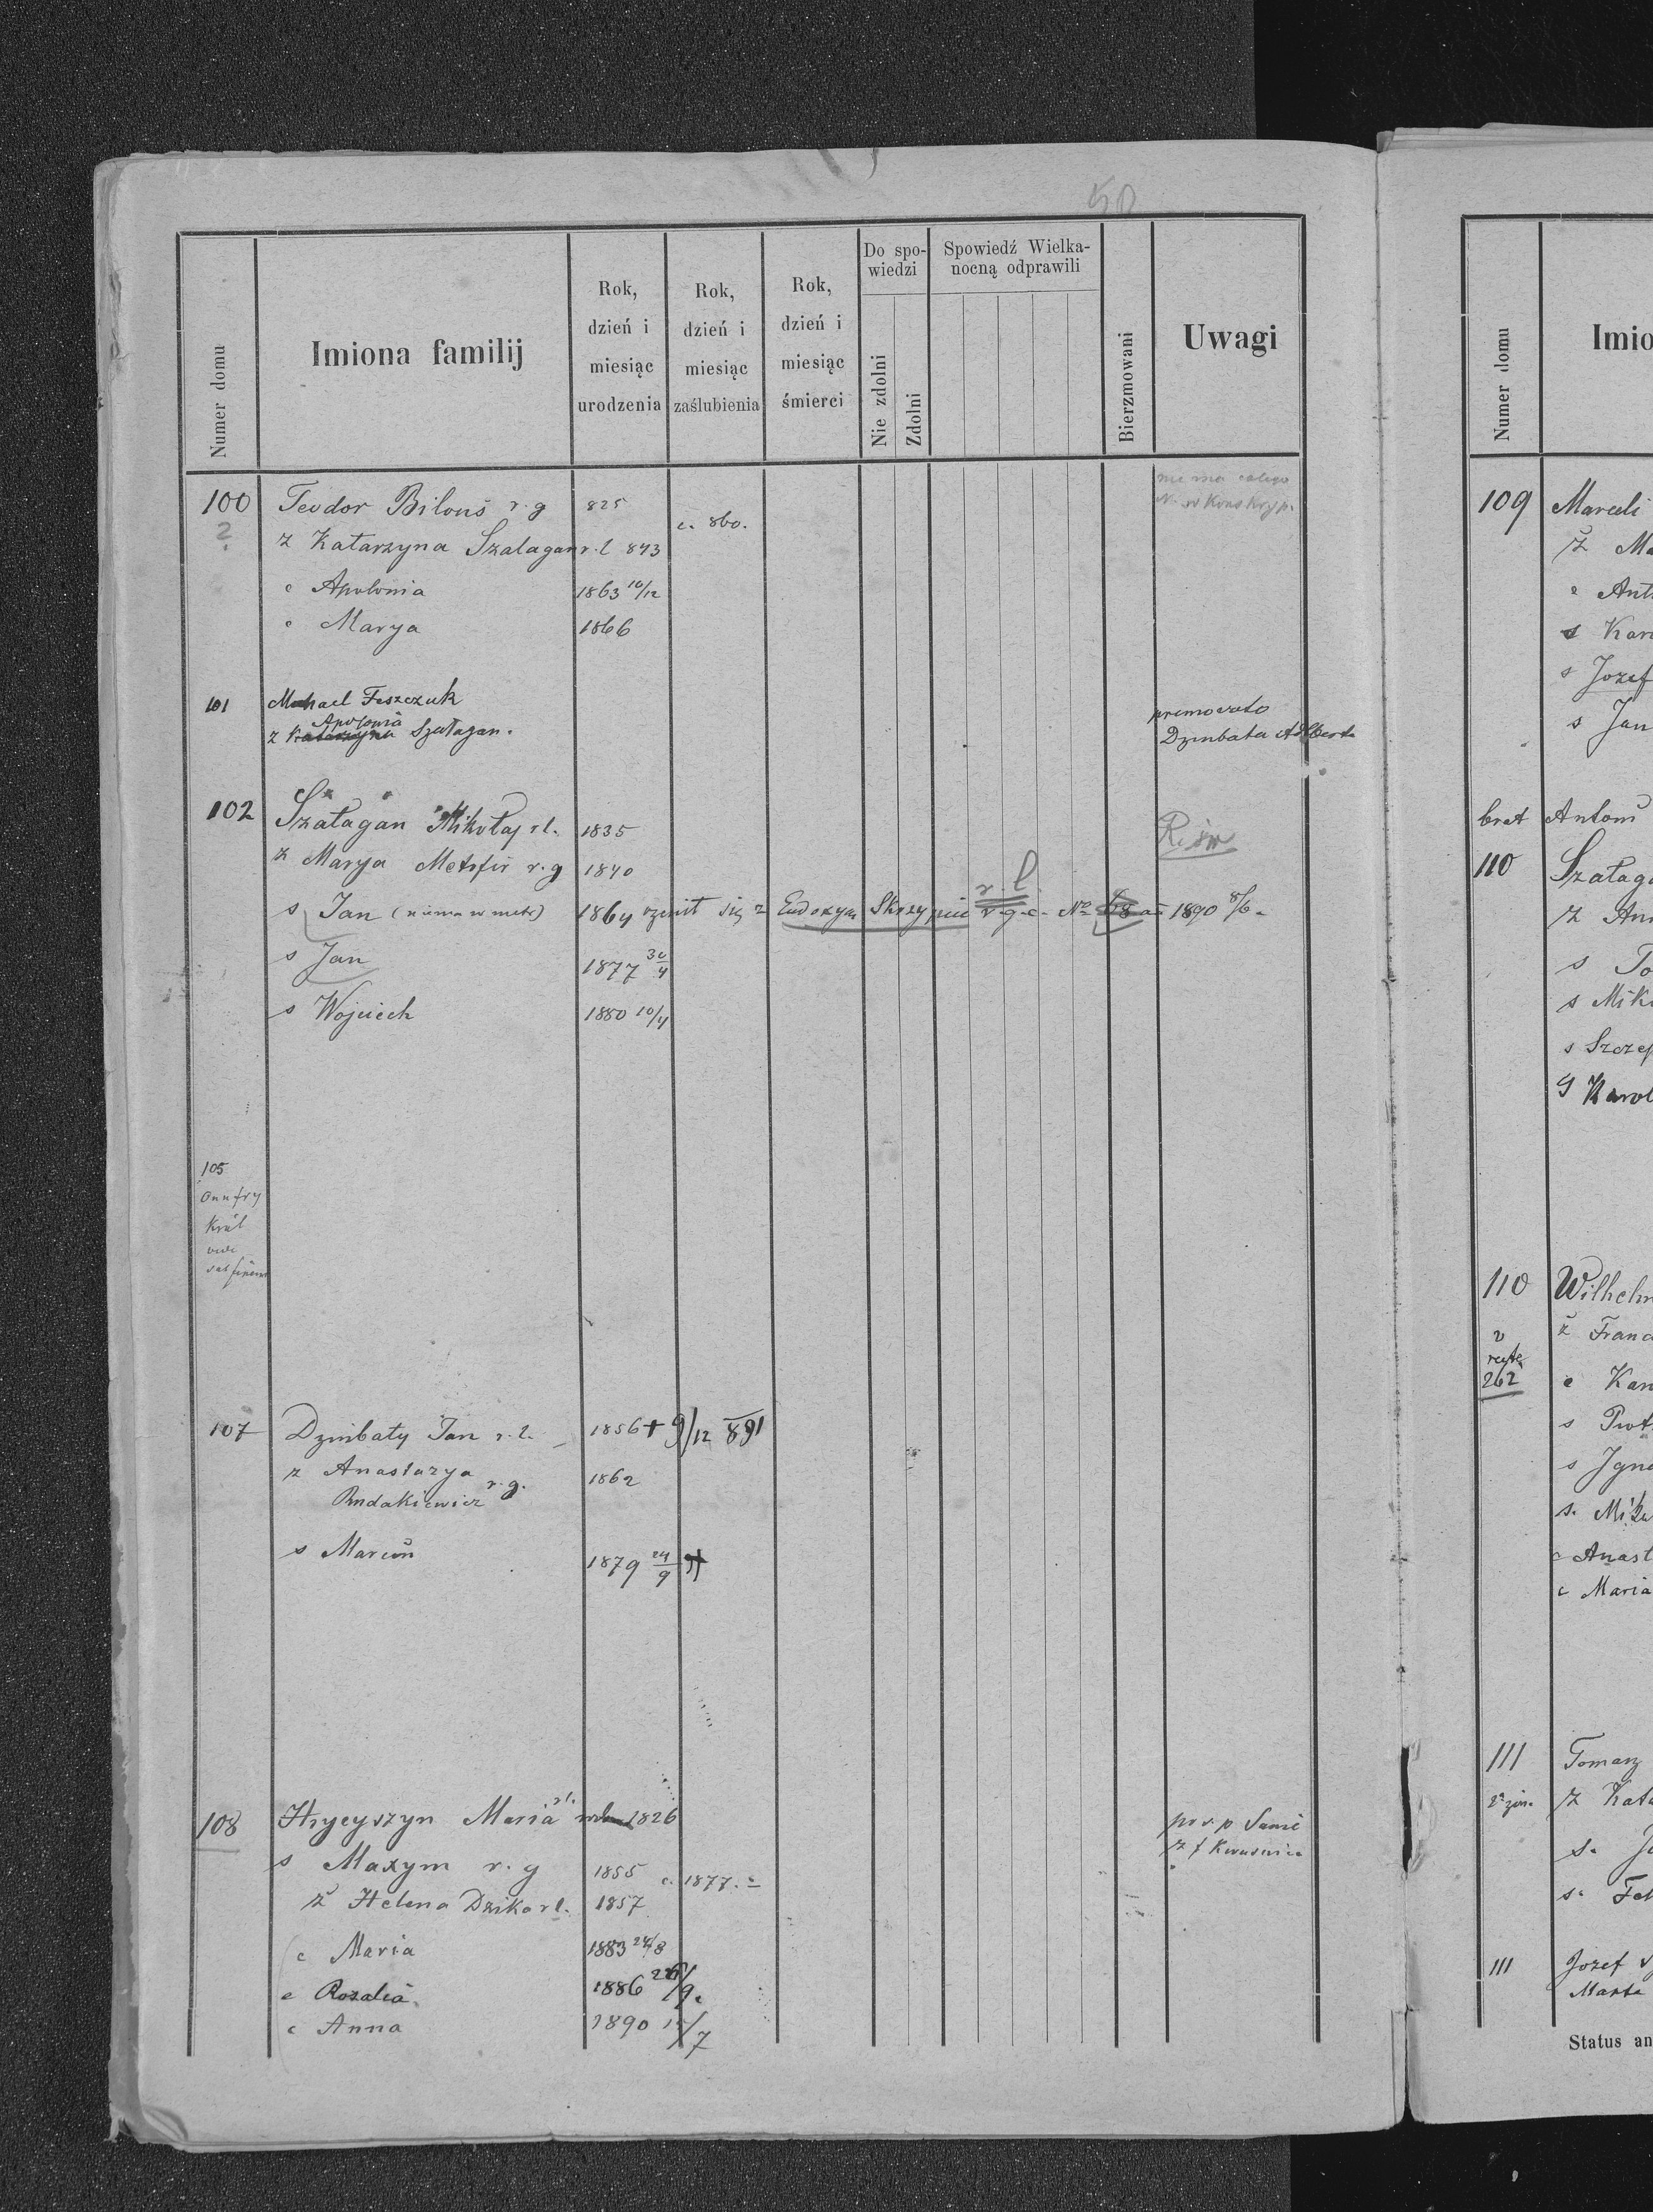 50
Numer domu
Imiona familij
Rok, dzień i miesiąc urodzenia
Rok, dzień i miesiąc zaślubienia
Rok, dzień i miesiąc śmierci
Do spo-
wiedzi
Nie zdolni
Zdolni
Spowiedź Wielka-
nocną odprawili
Bierzmowani
Uwagi
100 Teodor Bilouś r. g 825 c. 860. nie ma całego
? ż Katarzyna Szalagan r. l 843 N. w Konskryp.
c Apolonia 1863 10/12
c Marya 1866
101 Michael Feszczuk
Apolonia
ż Katarzyna Szałagan. Dzinbata Alberta
102 Szałagan Mikołaj r l. 1835
ż Marya r. g 1840
r. l.
s Jan (niema w metr) 1864 ożenił się z Eudoxyą r. g. c. No 1890 8/6
s Jan 1877 30/4
s Wojciech 1880 10/4
105
Onufry
Król
vide
sat finem
107 Dzinbaty Jan r. l. 1856 + 9/12 891
ż Anastazya r. g. 1862
Rudakiewicz
s Marcin 1879 24/9 +
108 Hrycyszyn Maria r l. 1826
s Maxym r. g 1855 c. 1877.
ż Helena Dzika r l. 1857
c Maria 1883 24/8
c Rozalia 1886 26/9
c Anna 1890 15/7
Numer domu
Imio
109 Marceli
ż Ma
c Ant
s Karo
s Jozef
s Jan
brat Antoni
110 Szałaga
ż Ann
s To
s Miko
s Szczep
Karol
110 Wilhelm
v ż Franc
recte
262 c Kar
s Piot
s Igna
s. Miko
c Anast
c Maria
111 Tomasz
ż Kata
s. J
s. Fel
111 Jozef
Marta
Status an